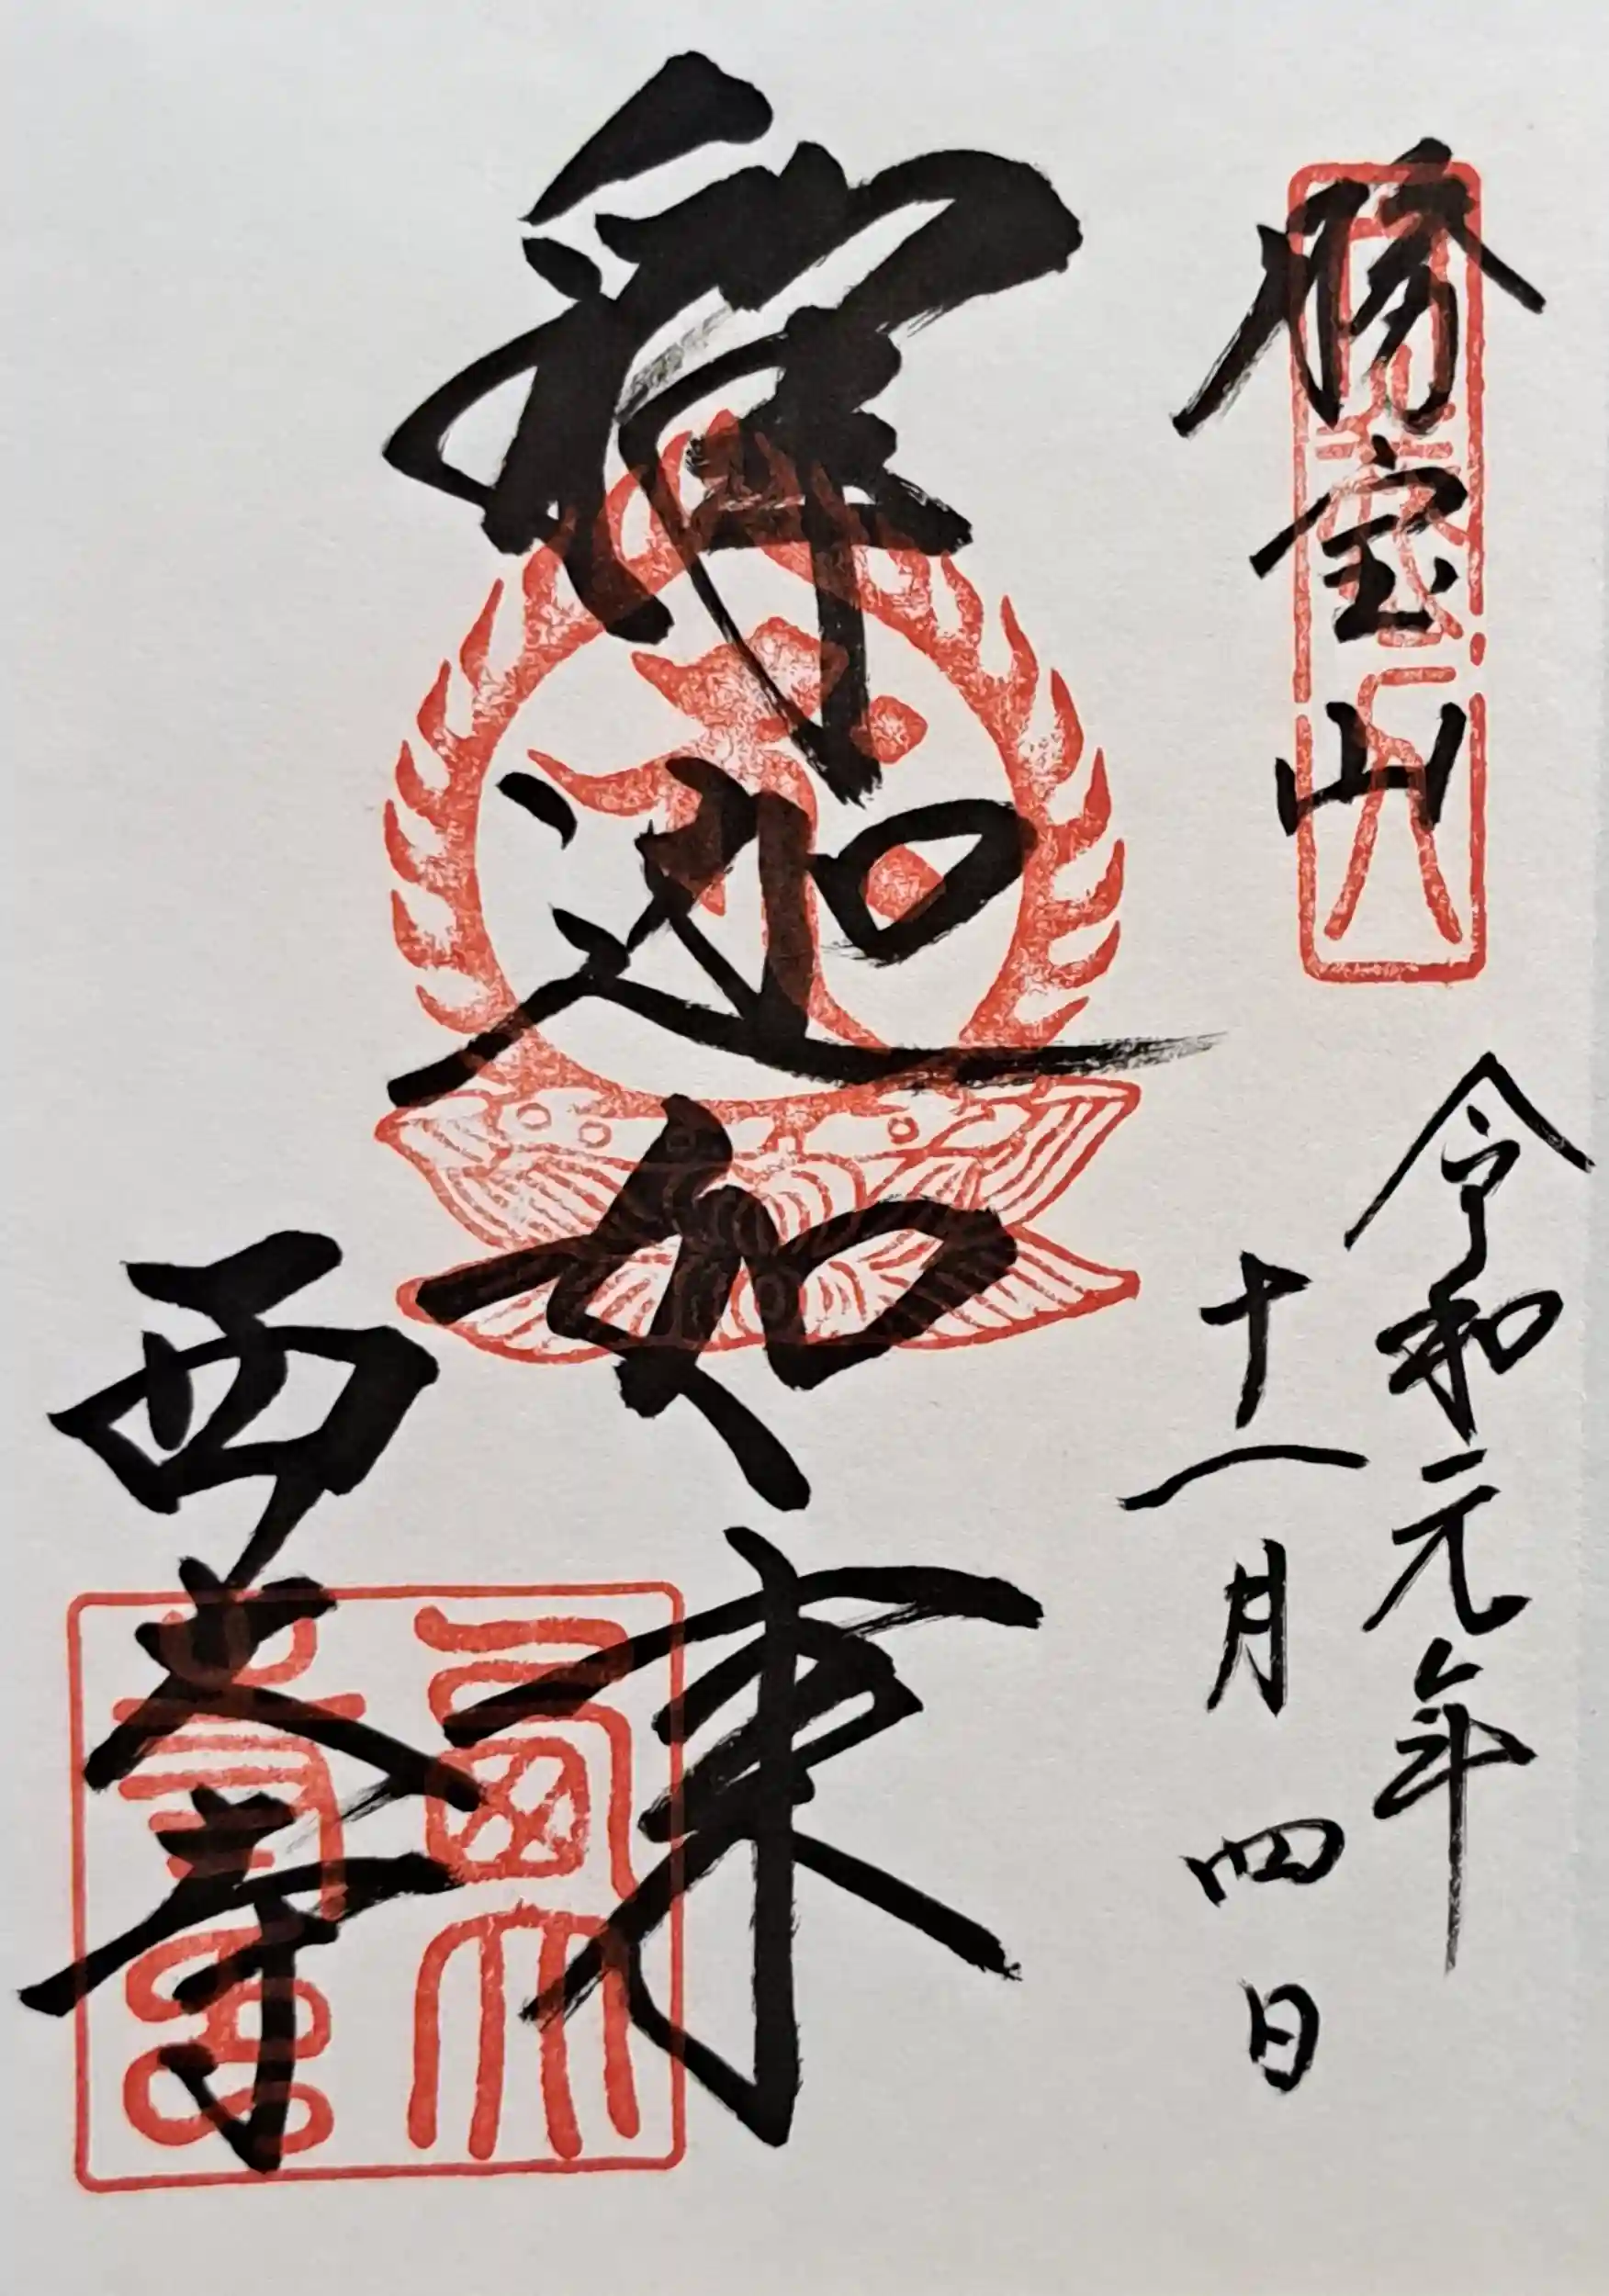 勝宝山
令和元年
十一月四日
釋迦如来
西大寺